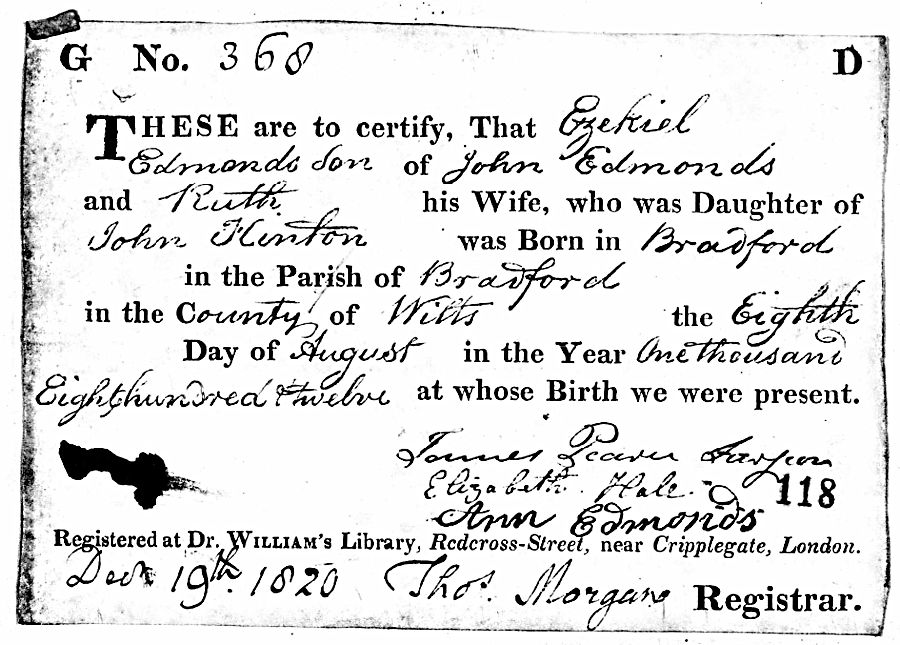 G No. 368 D
THESE are to certify, That Ezekiel
Edmonds Son of John Edmonds
and Ruth his Wife, who was Daughter of
John Hinton was Born in Bradford
in the Parish of Bradford
in the County of Wilts the Eighth
Day of August in the Year One thousand
Eight hundred & twelve at whose Birth we were present.
James Surgeon
Elizabeth Hale 118
Ann Edmonds
Registered at Dr. WILLIAM'S Library, Redcross-Street, near Cripplegate, London.
Decr 19th. 1820 Thos. Morgan Registrar.